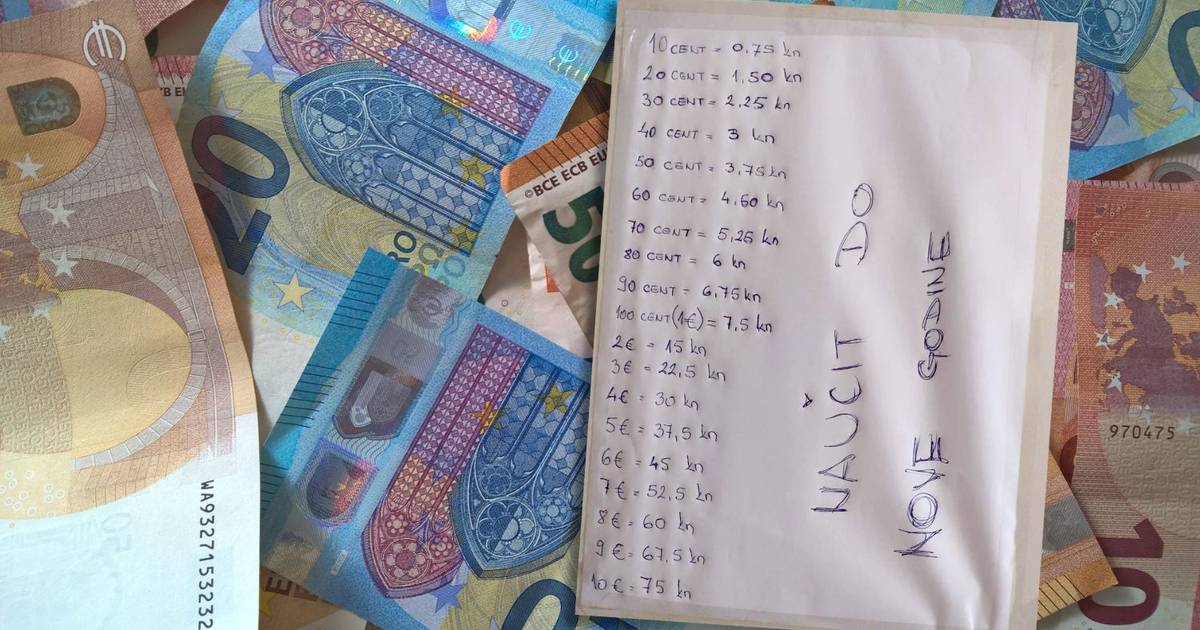 20
©BCE ECB EU
50
10 CENT = 0,75 kn
20 CENT = 1,50 kn
30 CENT = 2,25 kn
40 CENT = 3 kn
50 CENT = 3,75 kn
60 CENT = 4,50 kn
70 CENT = 5,25 kn
80 CENT = 6 kn
90 CENT = 6,75 kn
100 CENT (1€) = 7,5 kn
2€ = 15 kn
3€ = 22,5 kn
4€ = 30 kn
5€ = 37,5 kn
6€ = 45 kn
7€ = 52,5 kn
8€ = 60 kn
9€ = 67,5 kn
10€ = 75 kn
NAUČIT DO
NOVE GODINE
970475
10
WA9327153232